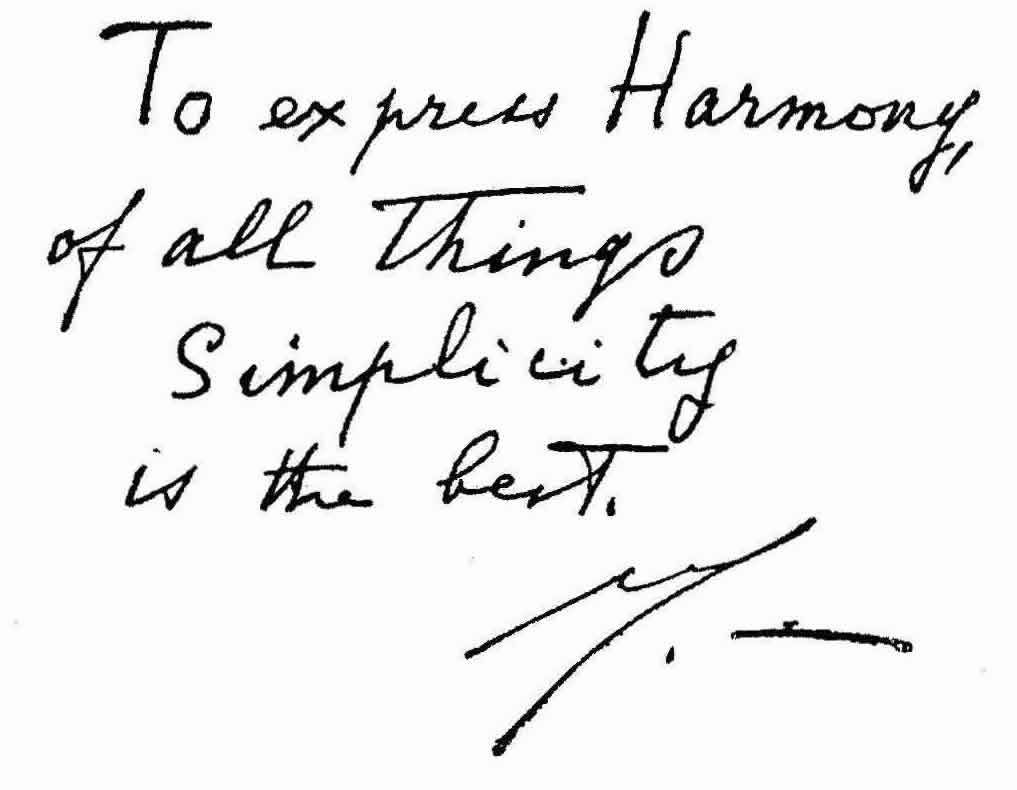 To express Harmony,
of all Things
Simplicity
is the best.